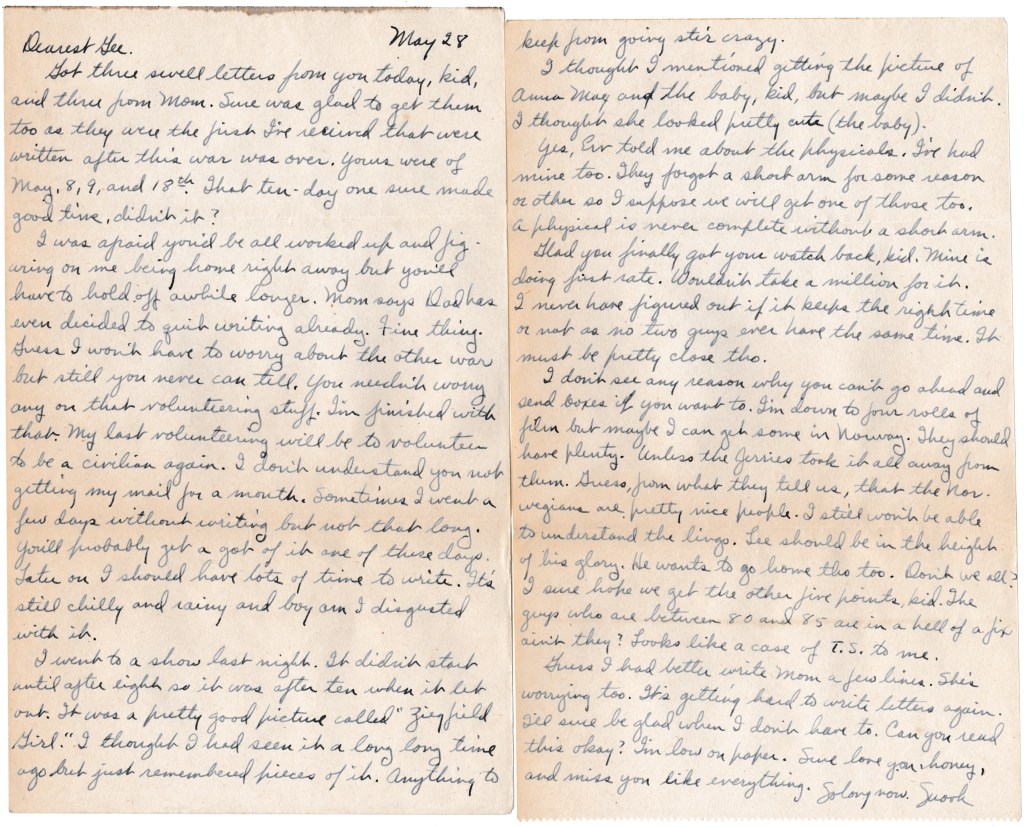 May 28
Dearest Gee.
Got three swell letters from you today, kid,
and three from Mom. Sure was glad to get them
too as they were the first I've recieved that were
written after this war was over. Yours were of
May, 8, 9, and 18th. That ten-day one sure made
good time, didn't it?
I was afraid you'd be all worked up and fig-
uring on me being home right away but you'll
have to hold off awhile longer. Mom says Dad has
even decided to quit writing already. Fine thing.
Guess I won't have to worry about the other war
but still you never can tell. You needn't worry
any on that volunteering stuff. I'm finished with
that. My last volunteering will be to volunteer
to be a civilian again. I don't understand you not
getting my mail for a month. Sometimes I went a
few days without writing but not that long.
You'll probably get a gob of it one of these days.
Later on I should have lots of time to write. It's
still chilly and rainy and boy am I disgusted
with it.
I went to a show last night. It didn't start
until after eight so it was after ten when it let
out. It was a pretty good picture called "Ziegfield
Girl." I thought I had seen it a long long time
ago but just remembered pieces of it. Anything to
keep from going stir crazy.
I thought I mentioned getting the picture of
Anna Mae and the baby, kid, but maybe I didn't.
I thought she looked pretty cute (the baby).
Yes, Erv told me about the physicals. I've had
mine too. They forgot a short arm for some reason
or other so I suppose we will get one of those too.
A physical is never complete without a short arm.
Glad you finally got your watch back, kid. Mine is
doing first rate. Wouldn't take a million for it.
I never have figured out if it keeps the right time
or not as no two guys ever have the same time. It
must be pretty close tho.
I don't see any reason why you can't go ahead and
send boxes if you want to. I'm down to four rolls of
film but maybe I can get some in Norway. They should
have plenty. Unless the Jerries took it all away from
them. Guess, from what they tell us, that the Nor-
wegians are pretty nice people. I still won't be able
to understand the lingo. Lee should be in the height
of his glory. He wants to go home tho too. Don't we all?
I sure hope we get the other five points, kid. The
guys who are between 80 and 85 are in a hell of a fix
ain't they? Looks like a case of T.S. to me.
Guess I had better write Mom a few lines. She's
worrying too. It's getting hard to write letters again.
I'll sure be glad when I don't have to. Can you read
this okay? I'm low on paper. Sure love you honey,
and miss you like everything. So long now.